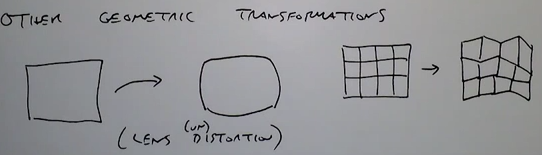 OTHER GEOMETRIC TRANSFORMATIONS
(LENS (UN) DISTORTION)